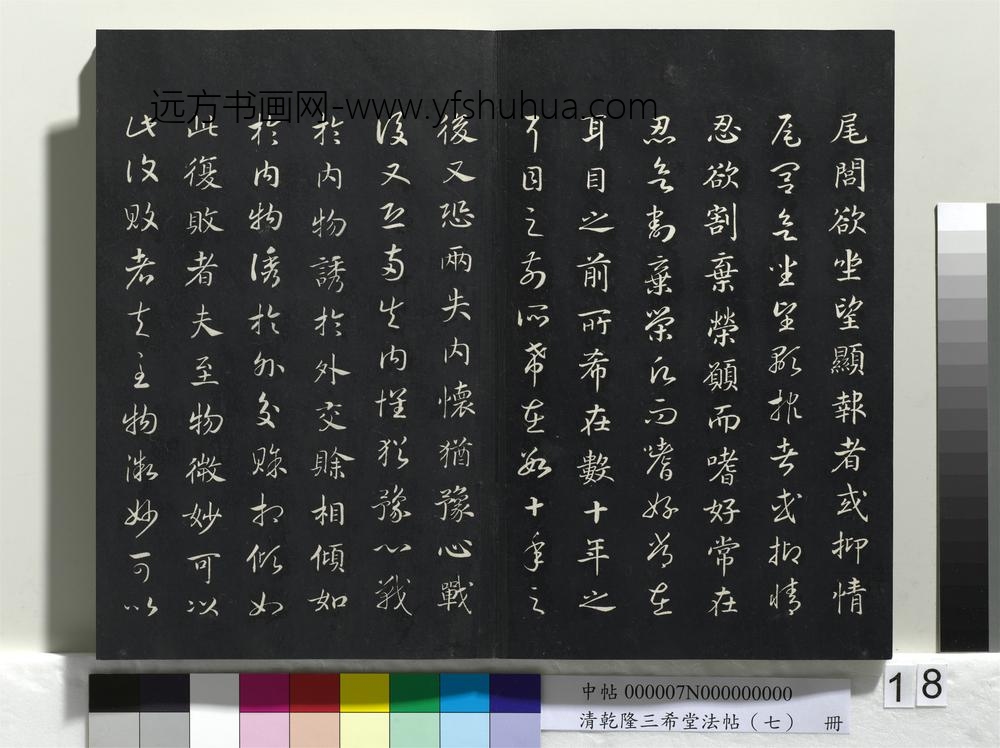 远方书画网-www.yfshuhua.com
尾閭欲坐望顯報者或抑情
尾閭欲坐望顯報者或抑情
忍欲割棄榮願而嗜好常在
忍欲割棄榮願而嗜好常在
耳目之前所希在數十年之
耳目之前所希在數十年之
後又恐兩失内懷猶豫心戰
後又恐兩失内懷猶豫心戰
於内物誘於外交賒相傾如
於内物誘於外交賒相傾如
此復敗者夫至物微妙可以
此復敗者夫至物微妙可以
中帖 000007N000000000
清乾隆三希堂法帖（七） 冊
18